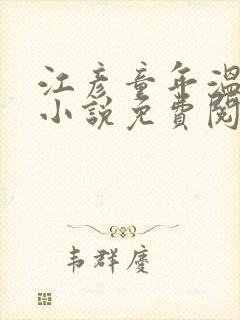 江彦童年溫
小說免費閱
韦群慶